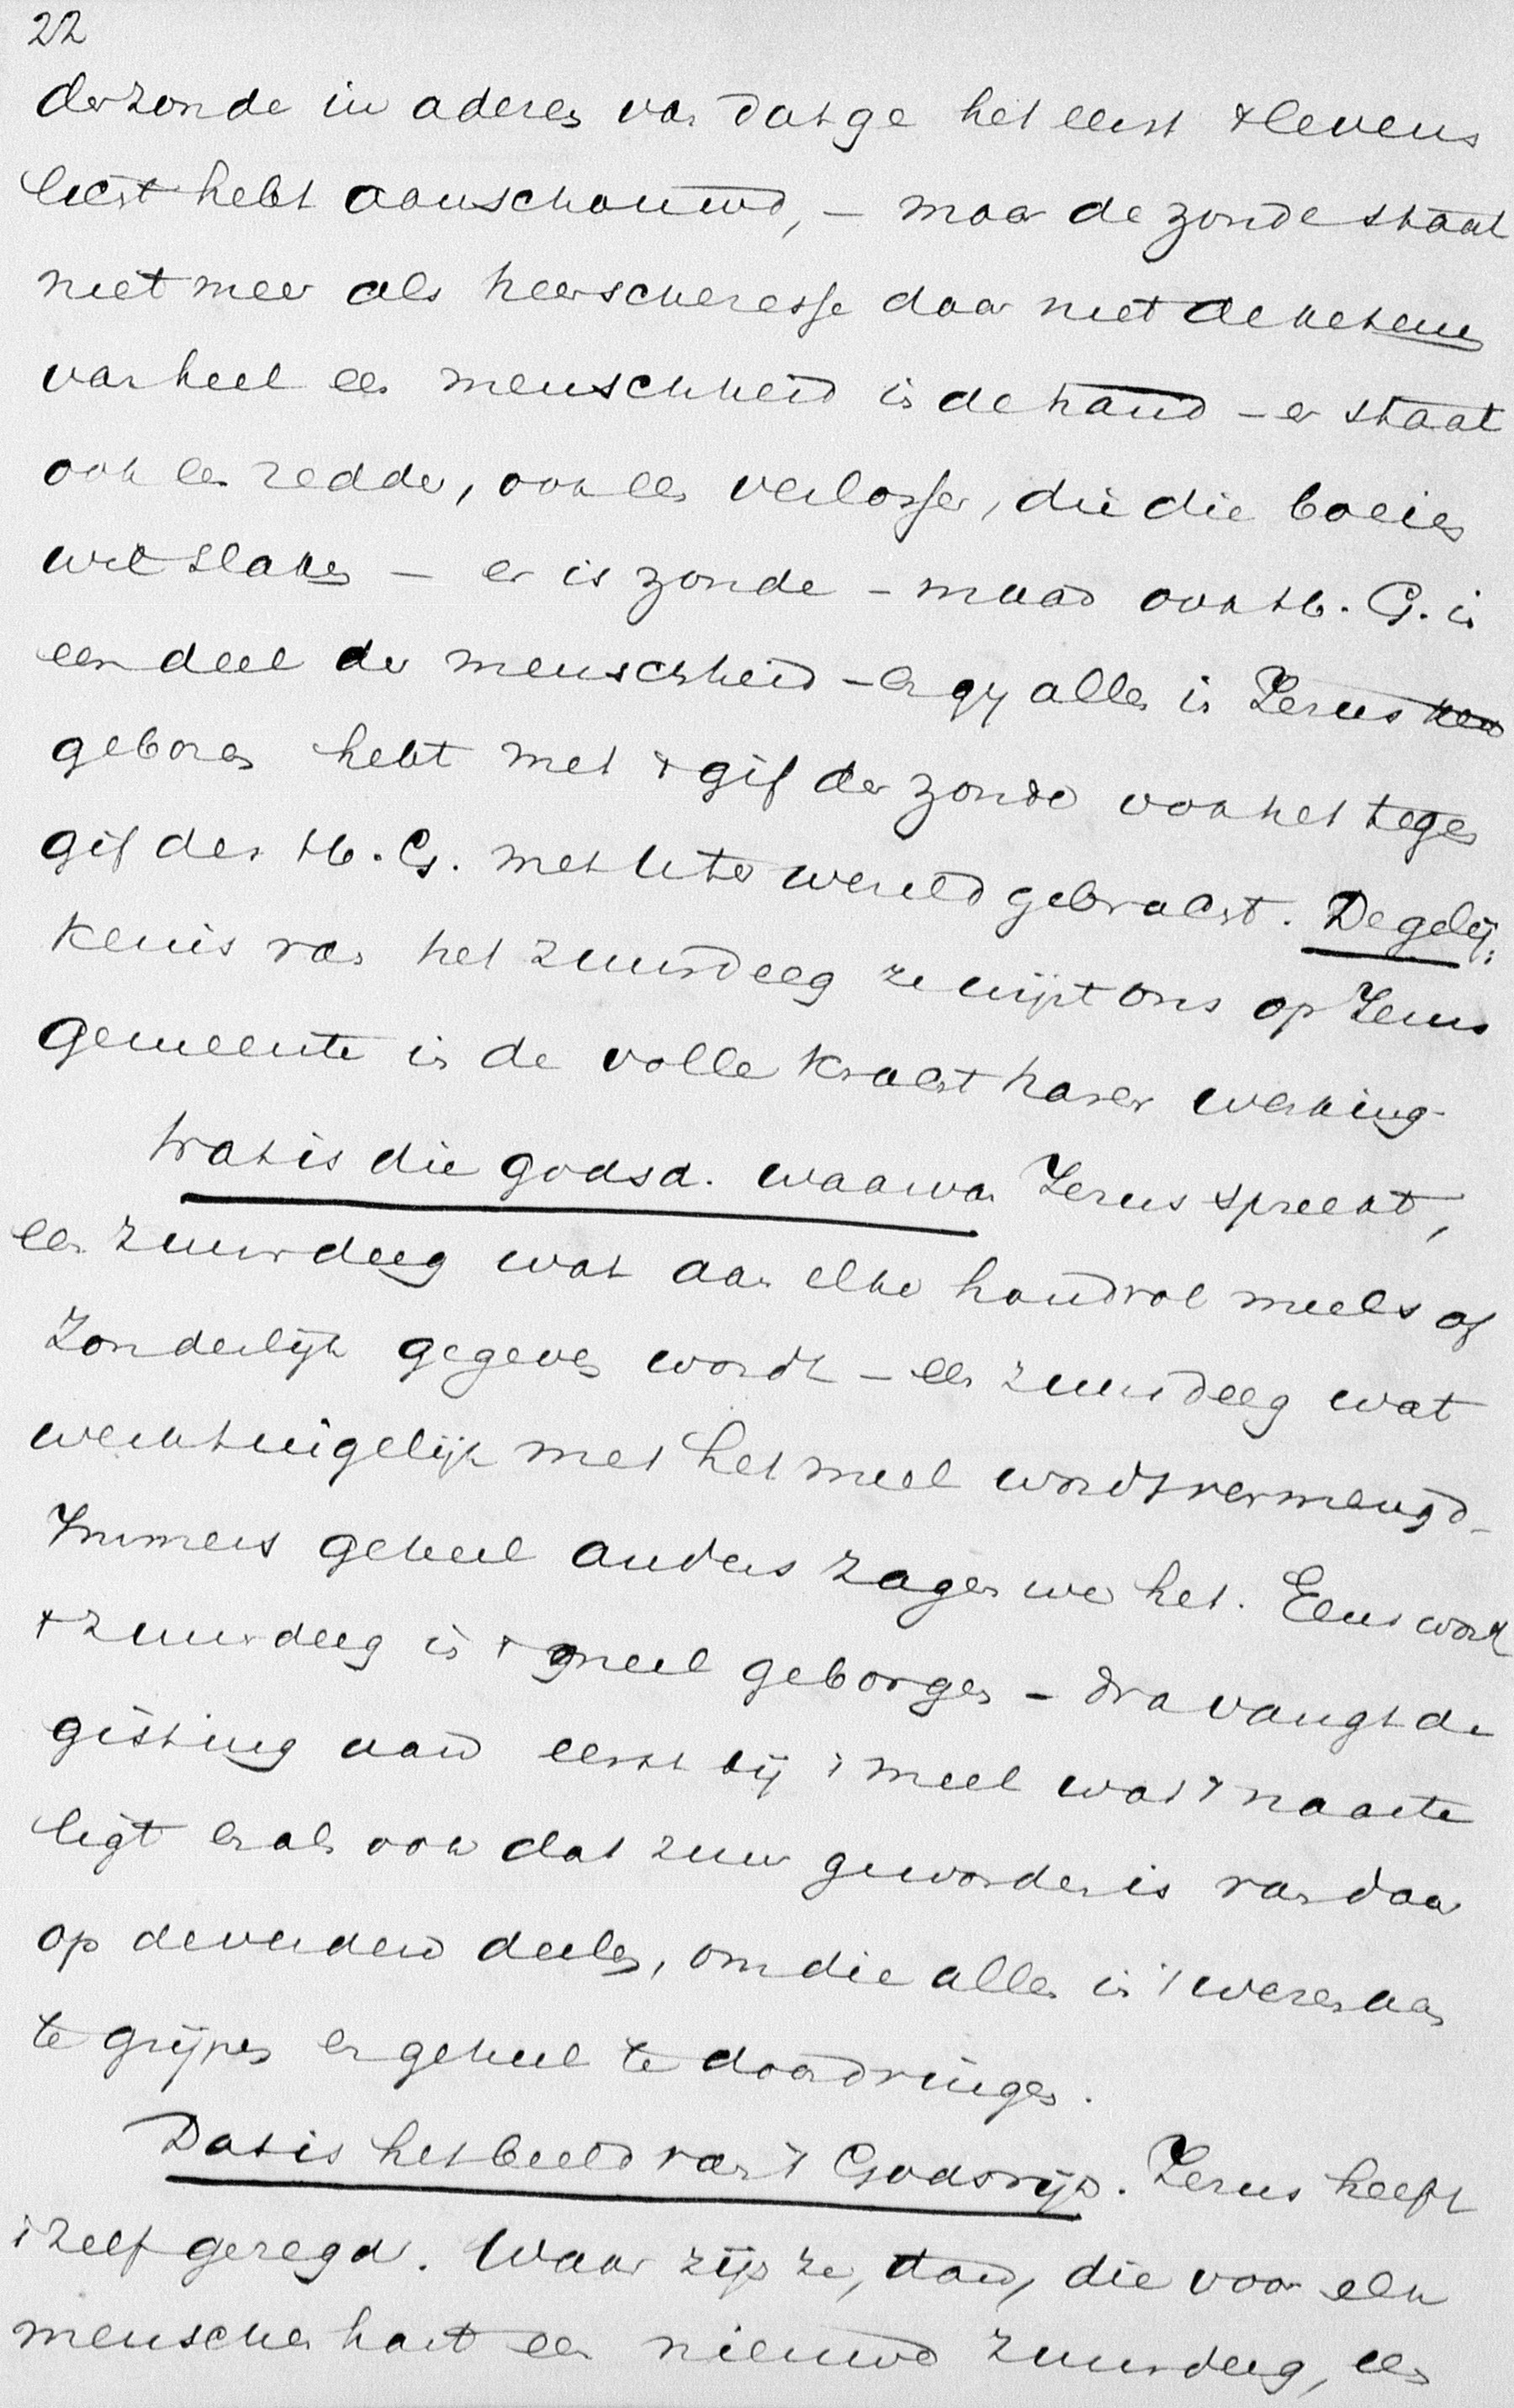 22
der zonde in aderen van dat ge het eerst 't levens
licht hebt aanschouwd, – maar de zonde staat
niet meer als heerscheresse daar niet de ketens
van heel een menschheid in de hand – er staat
ook een redder, ook een verlosser, die die boeien
wil slaken – er is zonde – maar ook H. G. in
een deel der menschheid – en gij allen in Jezus
geboren hebt met 't gif der zonde ook het tegen
gif des H. G. met u ter wereld gebracht. De gelij:
kenis van het zuurdeeg ze wijst ons op Jezus
gemeente in de volle kracht harer werking
Wat is die godsd. waarvan Jezus spreekt,
een zuurdeeg wat aan elke handvol meels af
zonderlijk gegeven wordt – een zuurdeeg wat
werktuigelijk met het meel wordt vermengd –
Immers geheel anders zagen we het. Eens wordt
't zuurdeeg in 't meel geborgen – dra vangt de
gisting aan eerst bij 't meel wat 't naaste
ligt en als ook dat zuur geworden is van daar
op de verdere deelen, om die allen in 't wezen aan
te grijpen en geheel te doordringen.
Dat is het beeld van 't Godsrijk. Jezus heeft
't zelf gezegd. Waar zijn ze, dan, die voor elk
menschen hart een nieuwe zuurdeeg, een